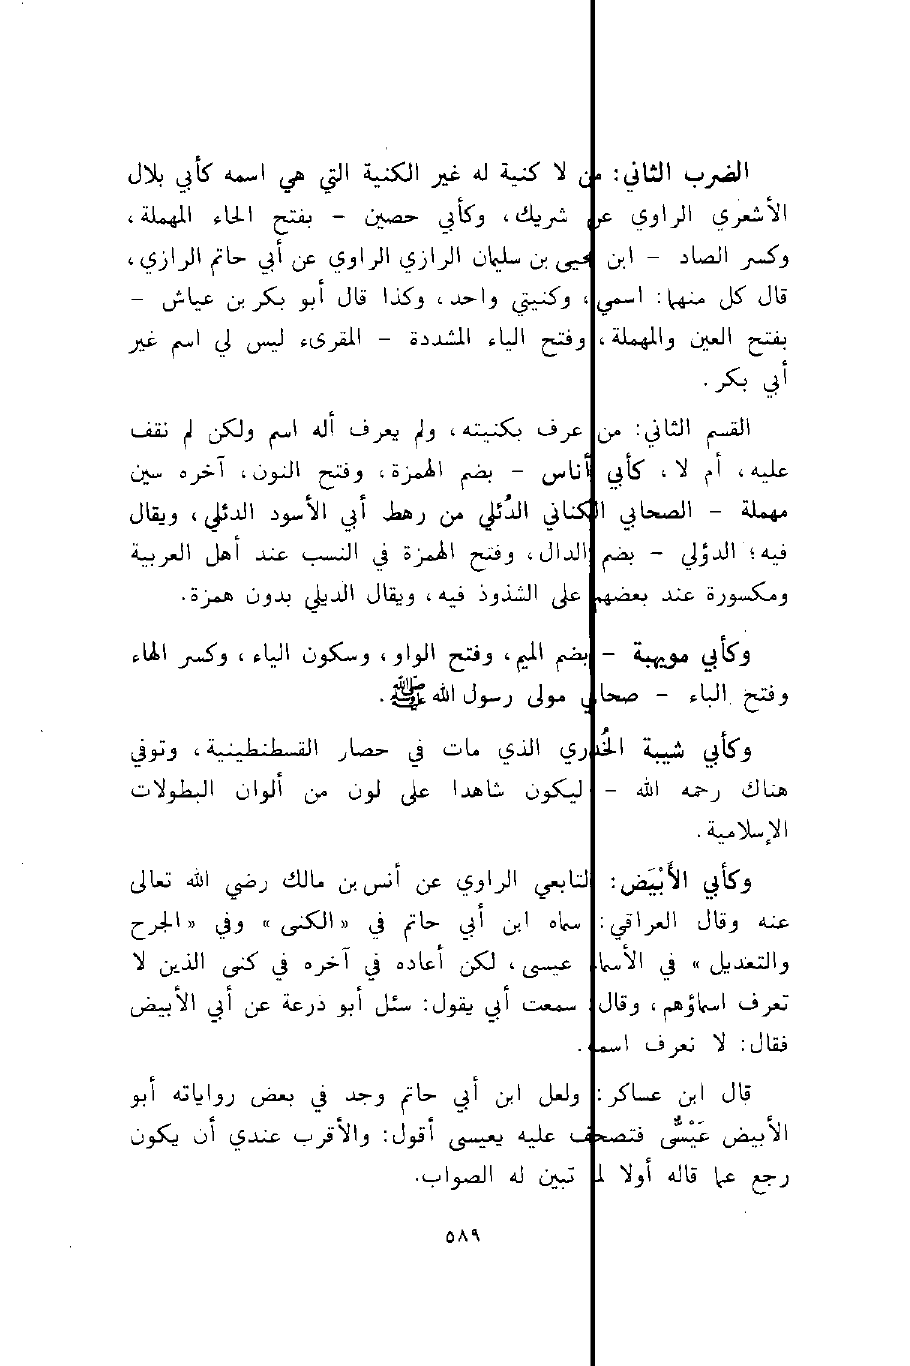 الضرب الثاني: من لا كنية له غير الكنية التي هي اسمه كأبي بلال
الأشعري الراوي عن شريك، وكأبي حصين - بفتح الحاء المهملة،
وكسر الصاد - ابن يحيى بن سليمان الرازي الراوي عن أبي حاتم الرازي،
قال كل منهما: اسمي، وكنيتي واحد، وكذا قال أبو بكر بن عياش -
بفتح العين والمهملة، وفتح الياء المشددة - المقرىء ليس لي اسم غير
أبي بكر.
القسم الثاني: من عرف بكنيته، ولم يعرف أله اسم ولكن لم نقف
عليه، أم لا، كأبي أناس - بضم الهمزة، وفتح النون، آخره سين
مهملة - الصحابي الكناني الدُئلي من رهط أبي الأسود الدئلي، ويقال
فيه؛ الدؤلي - بضم الدال، وفتح الهمزة في النسب عند أهل العربية
ومكسورة عند بعضهم على الشذوذ فيه، ويقال الديلي بدون همزة.
وكأبي مويهبة - بضم الميم، وفتح الواو، وسكون الياء، وكسر الهاء
وفتح الباء - صحابي مولى رسول الله ﷺ.
وكأبي شيبة الخُدري الذي مات في حصار القسطنطينية، وتوفي
هناك رحمه الله - ليكون شاهدا على لون من ألوان البطولات
الإسلامية.
وكأبي الأَبْيَض: التابعي الراوي عن أنس بن مالك رضي الله تعالى
عنه وقال العراقي: سماه ابن أبي حاتم في «الكنى» وفي «الجرح
والتعديل» في الأسماء عيسى، لكن أعاده في آخره في كنى الذين لا
تعرف اسماؤهم، وقال سمعت أبي يقول: سئل أبو ذرعة عن أبي الأبيض
فقال: لا نعرف اسمه.
قال ابن عساكر: ولعل ابن أبي حاتم وجد في بعض رواياته أبو
الأبيض عَبْسٌي فتصحف عليه يعيسى أقول: والأقرب عندي أن يكون
رجع عما قاله أولا لما تبين له الصواب.
٥٨٩